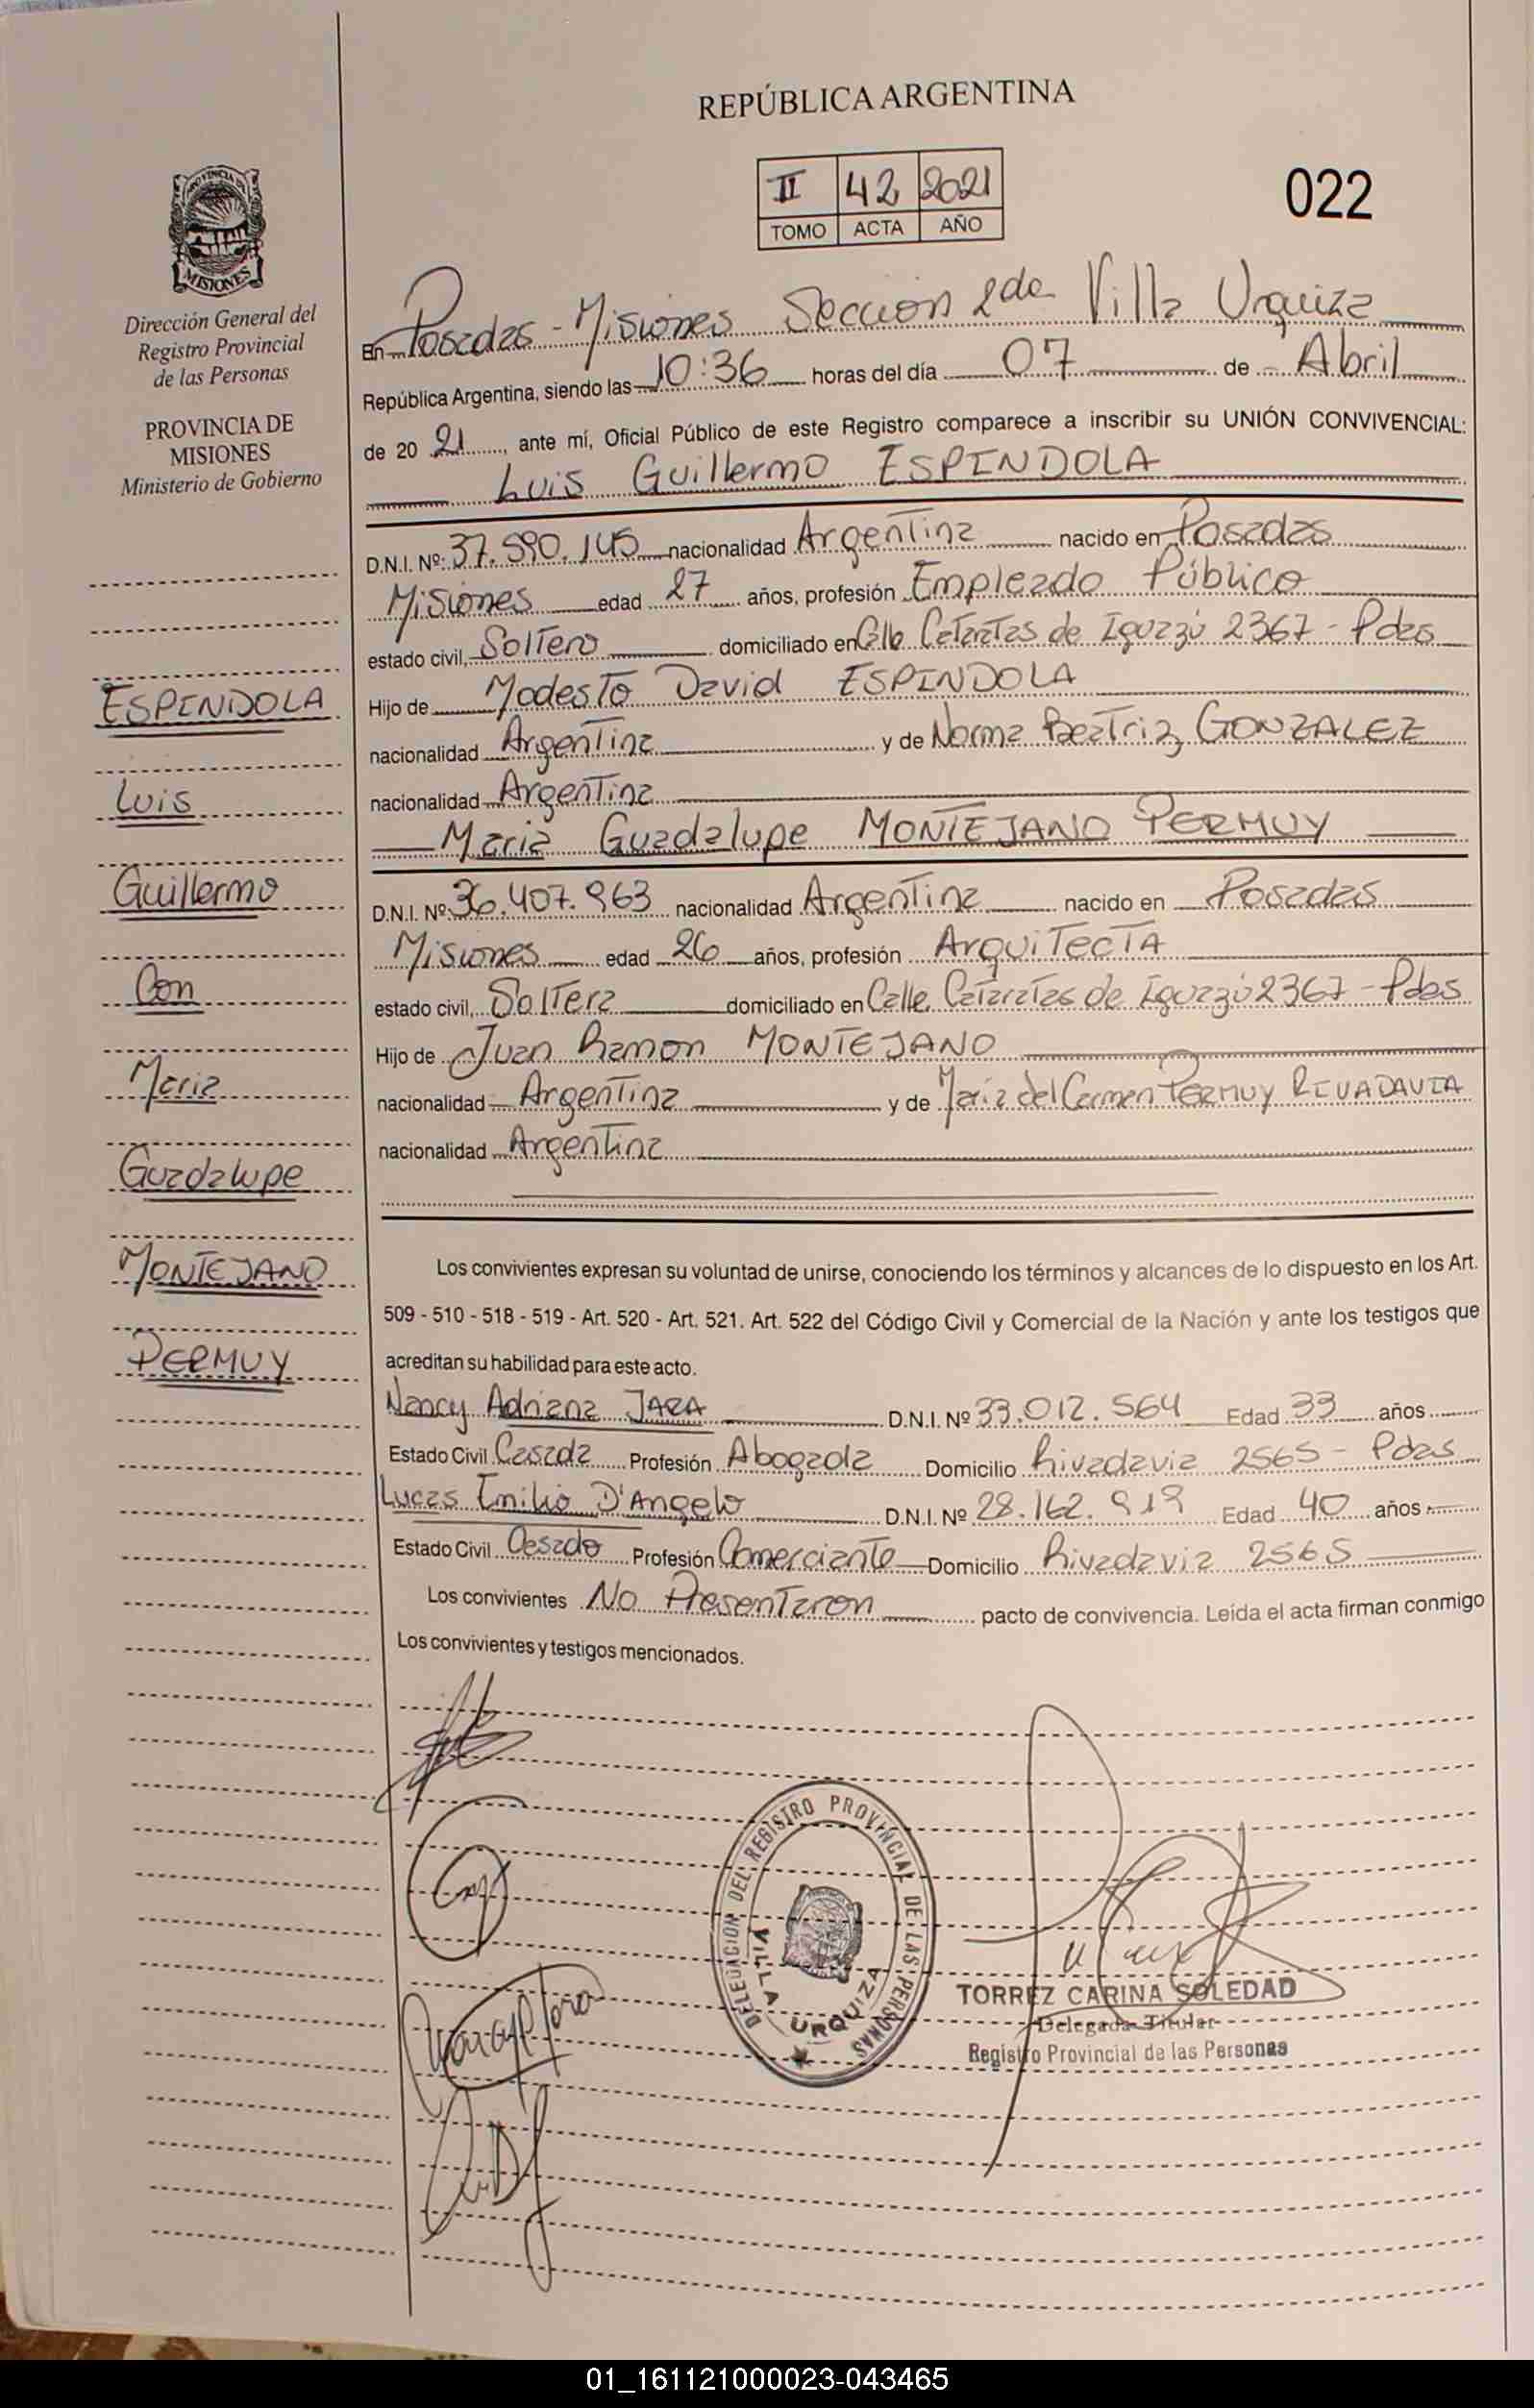 REPÚBLICA ARGENTINA
II 42 2021
TOMO ACTA AÑO
022
PROVINCIA DE
MISIONES
Dirección General del
Registro Provincial
de las Personas
PROVINCIA DE
MISIONES
Ministerio de Gobierno
ESPINDOLA
Luis
Guillermo
Con
Maria
Guadalupe
MONTEJANO
PERMUY
En Posadas - Misiones Sección 2da Villa Urquiza
República Argentina, siendo las 10:36 horas del día 07 de Abril
de 20 21, ante mí, Oficial Público de este Registro comparece a inscribir su UNIÓN CONVIVENCIAL:
Luis Guillermo ESPINDOLA
D.N.I. Nº: 37.590.145 nacionalidad Argentina nacido en Posadas
Misiones edad 27 años, profesión Empleado Público
estado civil, Soltero domiciliado en Calle Cataratas de Iguazú 2367 - Pdas
Hijo de Modesto David ESPINDOLA
nacionalidad Argentina y de Norma Beatriz GONZALEZ
nacionalidad Argentina
Maria Guadalupe MONTEJANO PERMUY
D.N.I. Nº 36.407.963 nacionalidad Argentina nacido en Posadas
Misiones edad 26 años, profesión Arquitecta
estado civil, Soltera domiciliado en Calle Cataratas de Iguazú 2367 - Pdas
Hijo de Juan Ramon MONTEJANO
nacionalidad Argentina y de María del Carmen PERMUY RIVADAVIA
nacionalidad Argentina
Los convivientes expresan su voluntad de unirse, conociendo los términos y alcances de lo dispuesto en los Art.
509 - 510 - 518 - 519 - Art. 520 - Art. 521. Art. 522 del Código Civil y Comercial de la Nación y ante los testigos que
acreditan su habilidad para este acto.
Nancy Adriana JARA D.N.I. Nº 33.012.564 Edad 33 años
Estado Civil Casada Profesión Abogada Domicilio Rivadavia 2565 - Pdas
Lucas Emilio D'Angelo D.N.I. Nº 28.162.919 Edad 40 años
Estado Civil Casado Profesión Comerciante Domicilio Rivadavia 2565
Los convivientes No Presentaron pacto de convivencia. Leída el acta firman conmigo
Los convivientes y testigos mencionados.
DELEGACION DEL REGISTRO PROVINCIAL DE LAS PERSONAS
VILLA URQUIZA
TORREZ CARINA SOLEDAD
Delegada Titular
Registro Provincial de las Personas
01_161121000023-043465